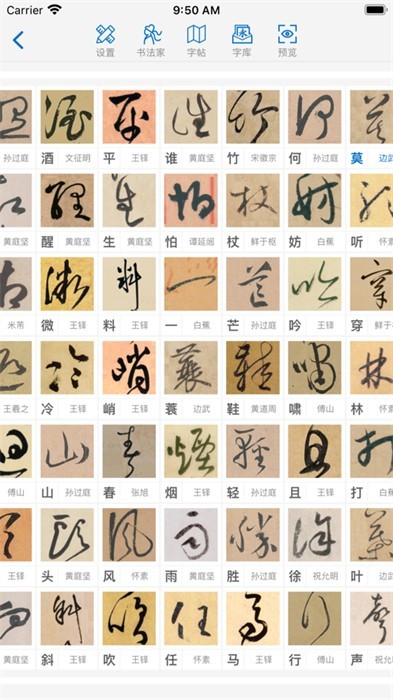 Carrier 9:50 AM
设置 书法家 字帖 字库 预览
孙过庭 酒 文征明 平 王铎 谁 黄庭坚 竹 宋徽宗 何 孙过庭 莫 边武
黄庭坚 醒 黄庭坚 生 黄庭坚 怕 谭延闿 杖 鲜于枢 妨 白蕉 听 怀素
米芾 微 王铎 料 王铎 一 白蕉 芒 孙过庭 吟 王铎 穿 鲜于
王羲之 冷 王铎 峭 王铎 蓑 边武 鞋 黄道周 啸 傅山 林 怀素
傅山 山 孙过庭 春 张旭 烟 王铎 轻 孙过庭 且 王铎 打 白蕉
王铎 头 黄庭坚 风 怀素 雨 黄庭坚 胜 孙过庭 徐 祝允明 叶 边武
黄庭坚 斜 王铎 吹 王铎 任 怀素 马 王铎 行 傅山 声 怀素